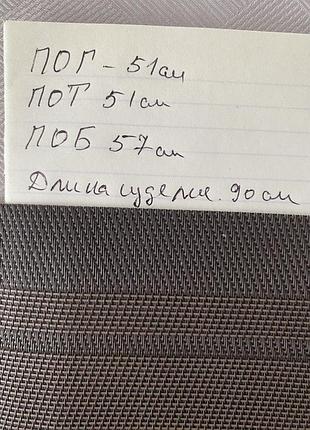 ПОГ - 51см
ПОТ 51см
ПОБ 57см
Длина изделия. 90см